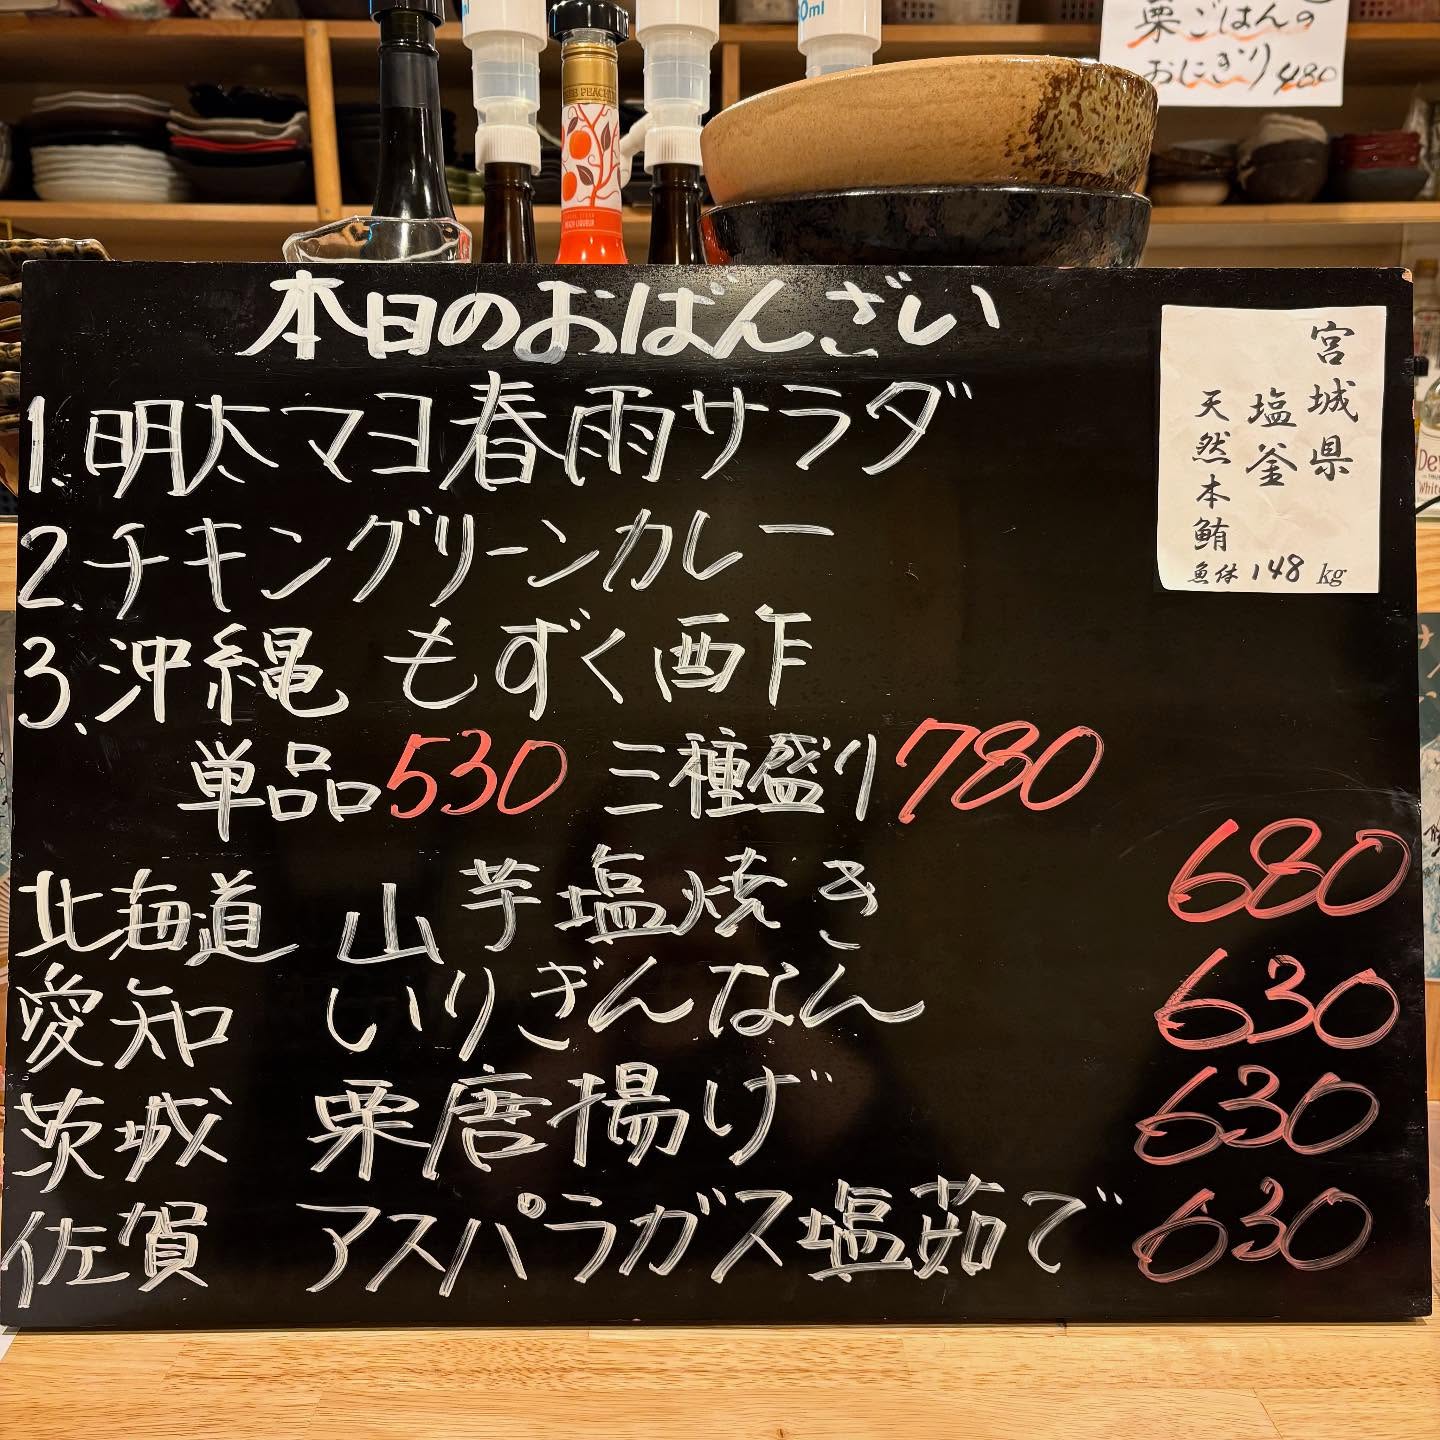 栗ごはんの
おにぎり480
本日のおばんざい
1.明太マヨ春雨サラダ
2.チキングリーンカレー
3.沖縄 もずく酢
単品530 三種盛り780
北海道 山芋塩焼き 680
愛知 いりぎんなん 630
茨城 栗唐揚げ 630
佐賀 アスパラガス塩茹で 630
宮城県
塩釜
天然本鮪
魚体148kg
PEACH LIQUEUR